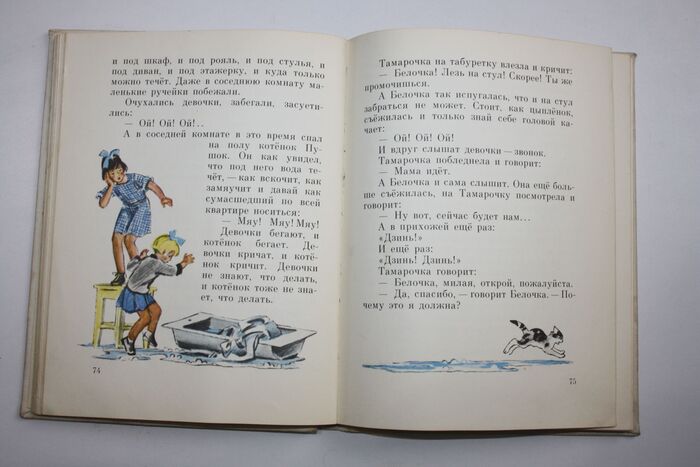 и под шкаф, и под рояль, и под стулья, и
под диван, и под этажерку, и куда только
можно течёт. Даже в соседнюю комнату ма-
ленькие ручейки побежали.
Очухались девочки, забегали, засуети-
лись:
— Ой! Ой! Ой!..
А в соседней комнате в это время спал
на полу котёнок Пу-
шок. Он как увидел,
что под него вода те-
чёт, — как вскочит, как
замяучит и давай как
сумасшедший по всей
квартире носиться:
— Мяу! Мяу! Мяу!
Девочки бегают, и
котёнок бегает. Де-
вочки кричат, и котё-
нок кричит. Девочки
не знают, что делать,
и котёнок тоже не зна-
ет, что делать.
74
Тамарочка на табуретку влезла и кричит:
— Белочка! Лезь на стул! Скорее! Ты же
промочишься.
А Белочка так испугалась, что и на стул
забраться не может. Стоит, как цыплёнок,
съёжилась и только знай себе головой ка-
чает:
— Ой! Ой! Ой!
И вдруг слышат девочки — звонок.
Тамарочка побледнела и говорит:
— Мама идёт.
А Белочка и сама слышит. Она ещё боль-
ше съёжилась, на Тамарочку посмотрела и
говорит:
— Ну вот, сейчас будет нам...
А в прихожей ещё раз:
«Дзинь!»
И ещё раз:
«Дзинь! Дзинь!»
Тамарочка говорит:
— Белочка, милая, открой, пожалуйста.
— Да, спасибо, — говорит Белочка. — По-
чему это я должна?
75